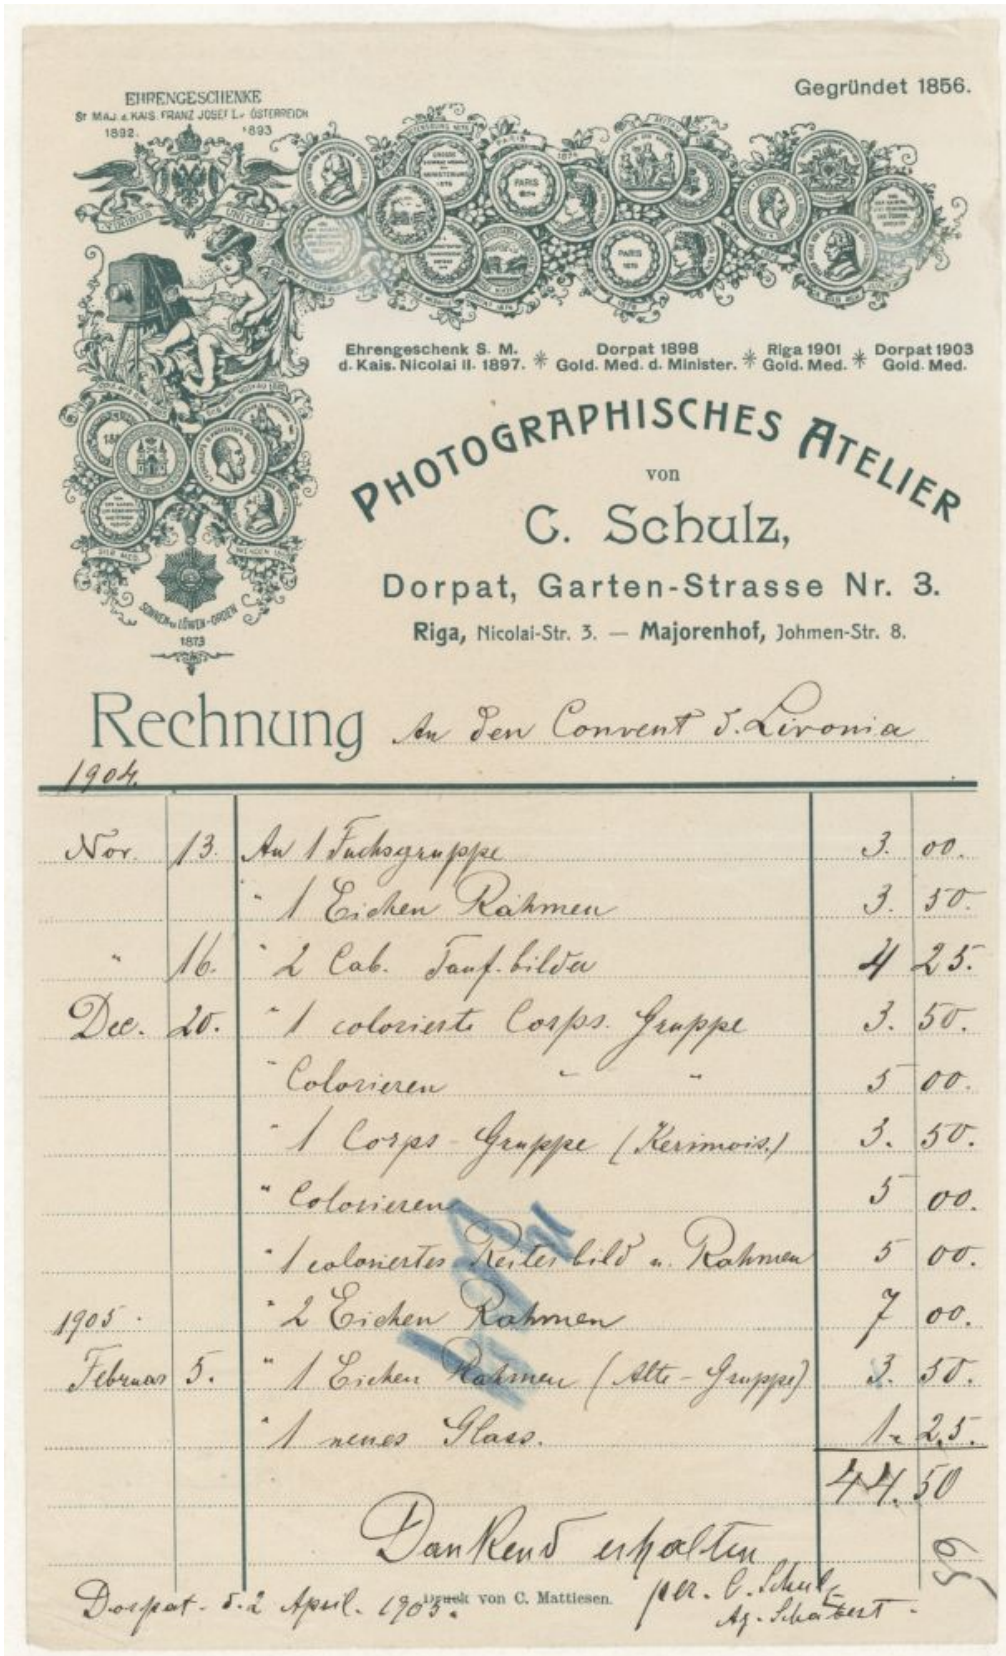 Gegründet 1856.
EHRENGESCHENKE
Sr MAJ. d. KAIS. FRANZ JOSEF I. v. ÖSTERREICH
1892. 1893
VIRIBUS UNITIS
PARIS
1874
PARIS
1875
Ehrengeschenk S. M. d. Kais. Nicolai II. 1897. * Dorpat 1898 Gold. Med. d. Minister. * Riga 1901 Gold. Med. * Dorpat 1903 Gold. Med.
PHOTOGRAPHISCHES ATELIER
von
C. Schulz,
Dorpat, Garten-Strasse Nr. 3.
Riga, Nicolai-Str. 3. — Majorenhof, Johmen-Str. 8.
SILB. MED.
SONNEN u. LÖWEN-ORDEN
1873
Rechnung An den Convent d. Livonia
1904.
Nov. 13. An 1 Fuchsgruppe 3. 00.
" 1 Eichen Rahmen 3. 50.
" 16. " 2 Cab. Tauf. bilder 4 25.
Dec. 20. " 1 colorierte Corps. Gruppe 3. 50.
" Colorieren " " 5 00.
" 1 Corps - Gruppe (Kerimois.) 3. 50.
" Colorieren 5 00.
" 1 coloriertes Reiter bild u. Rahmen 5 00.
1905. " 2 Eichen Rahmen 7 00.
Februar 5. " 1 Eichen Rahmen (Alte - Gruppe) 3. 50.
" 1 neues Glass. 1. 25.
44. 50
Dankend erhalten
per. C. Schulz
Dorpat. d. 2 April. 1905.
Druck von C. Mattiesen.
Ag. Schubert.
59